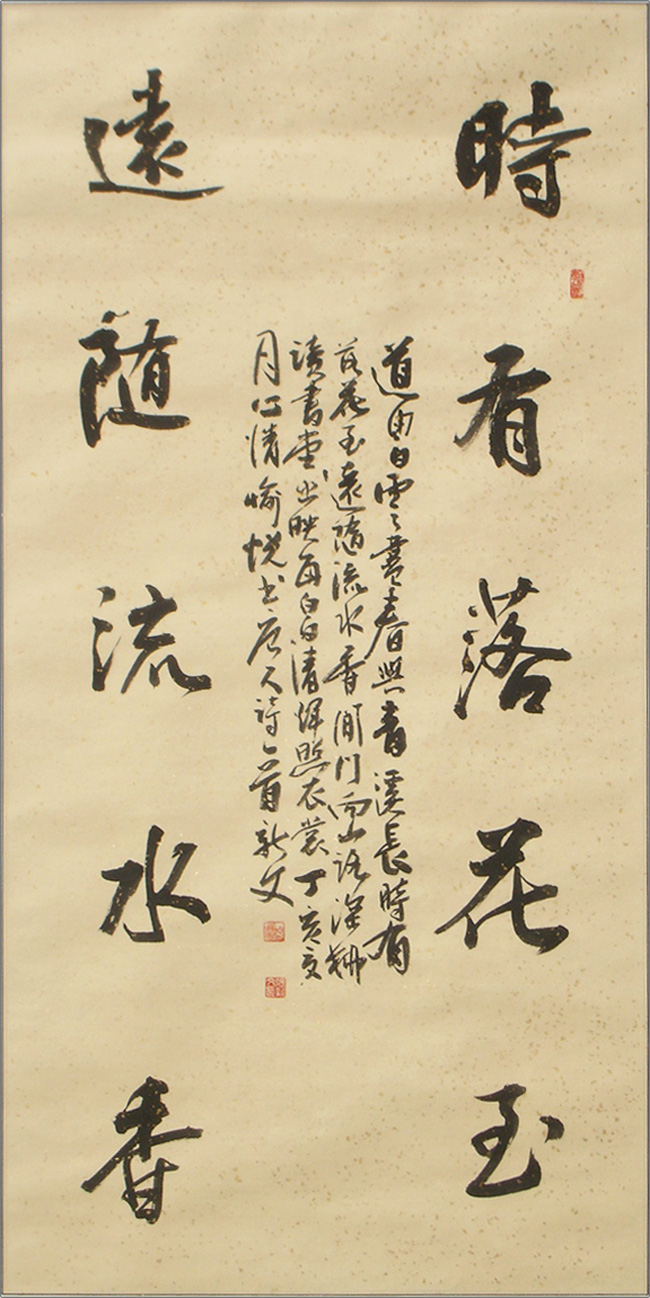 時有落花至
遠随流水香
道由白雲盡春與青溪長時有
落花至遠隨流水香閒門向山路深柳
讀書堂幽映每白日清輝照衣裳丁亥夏
月心情愉悦書唐人詩一首新文